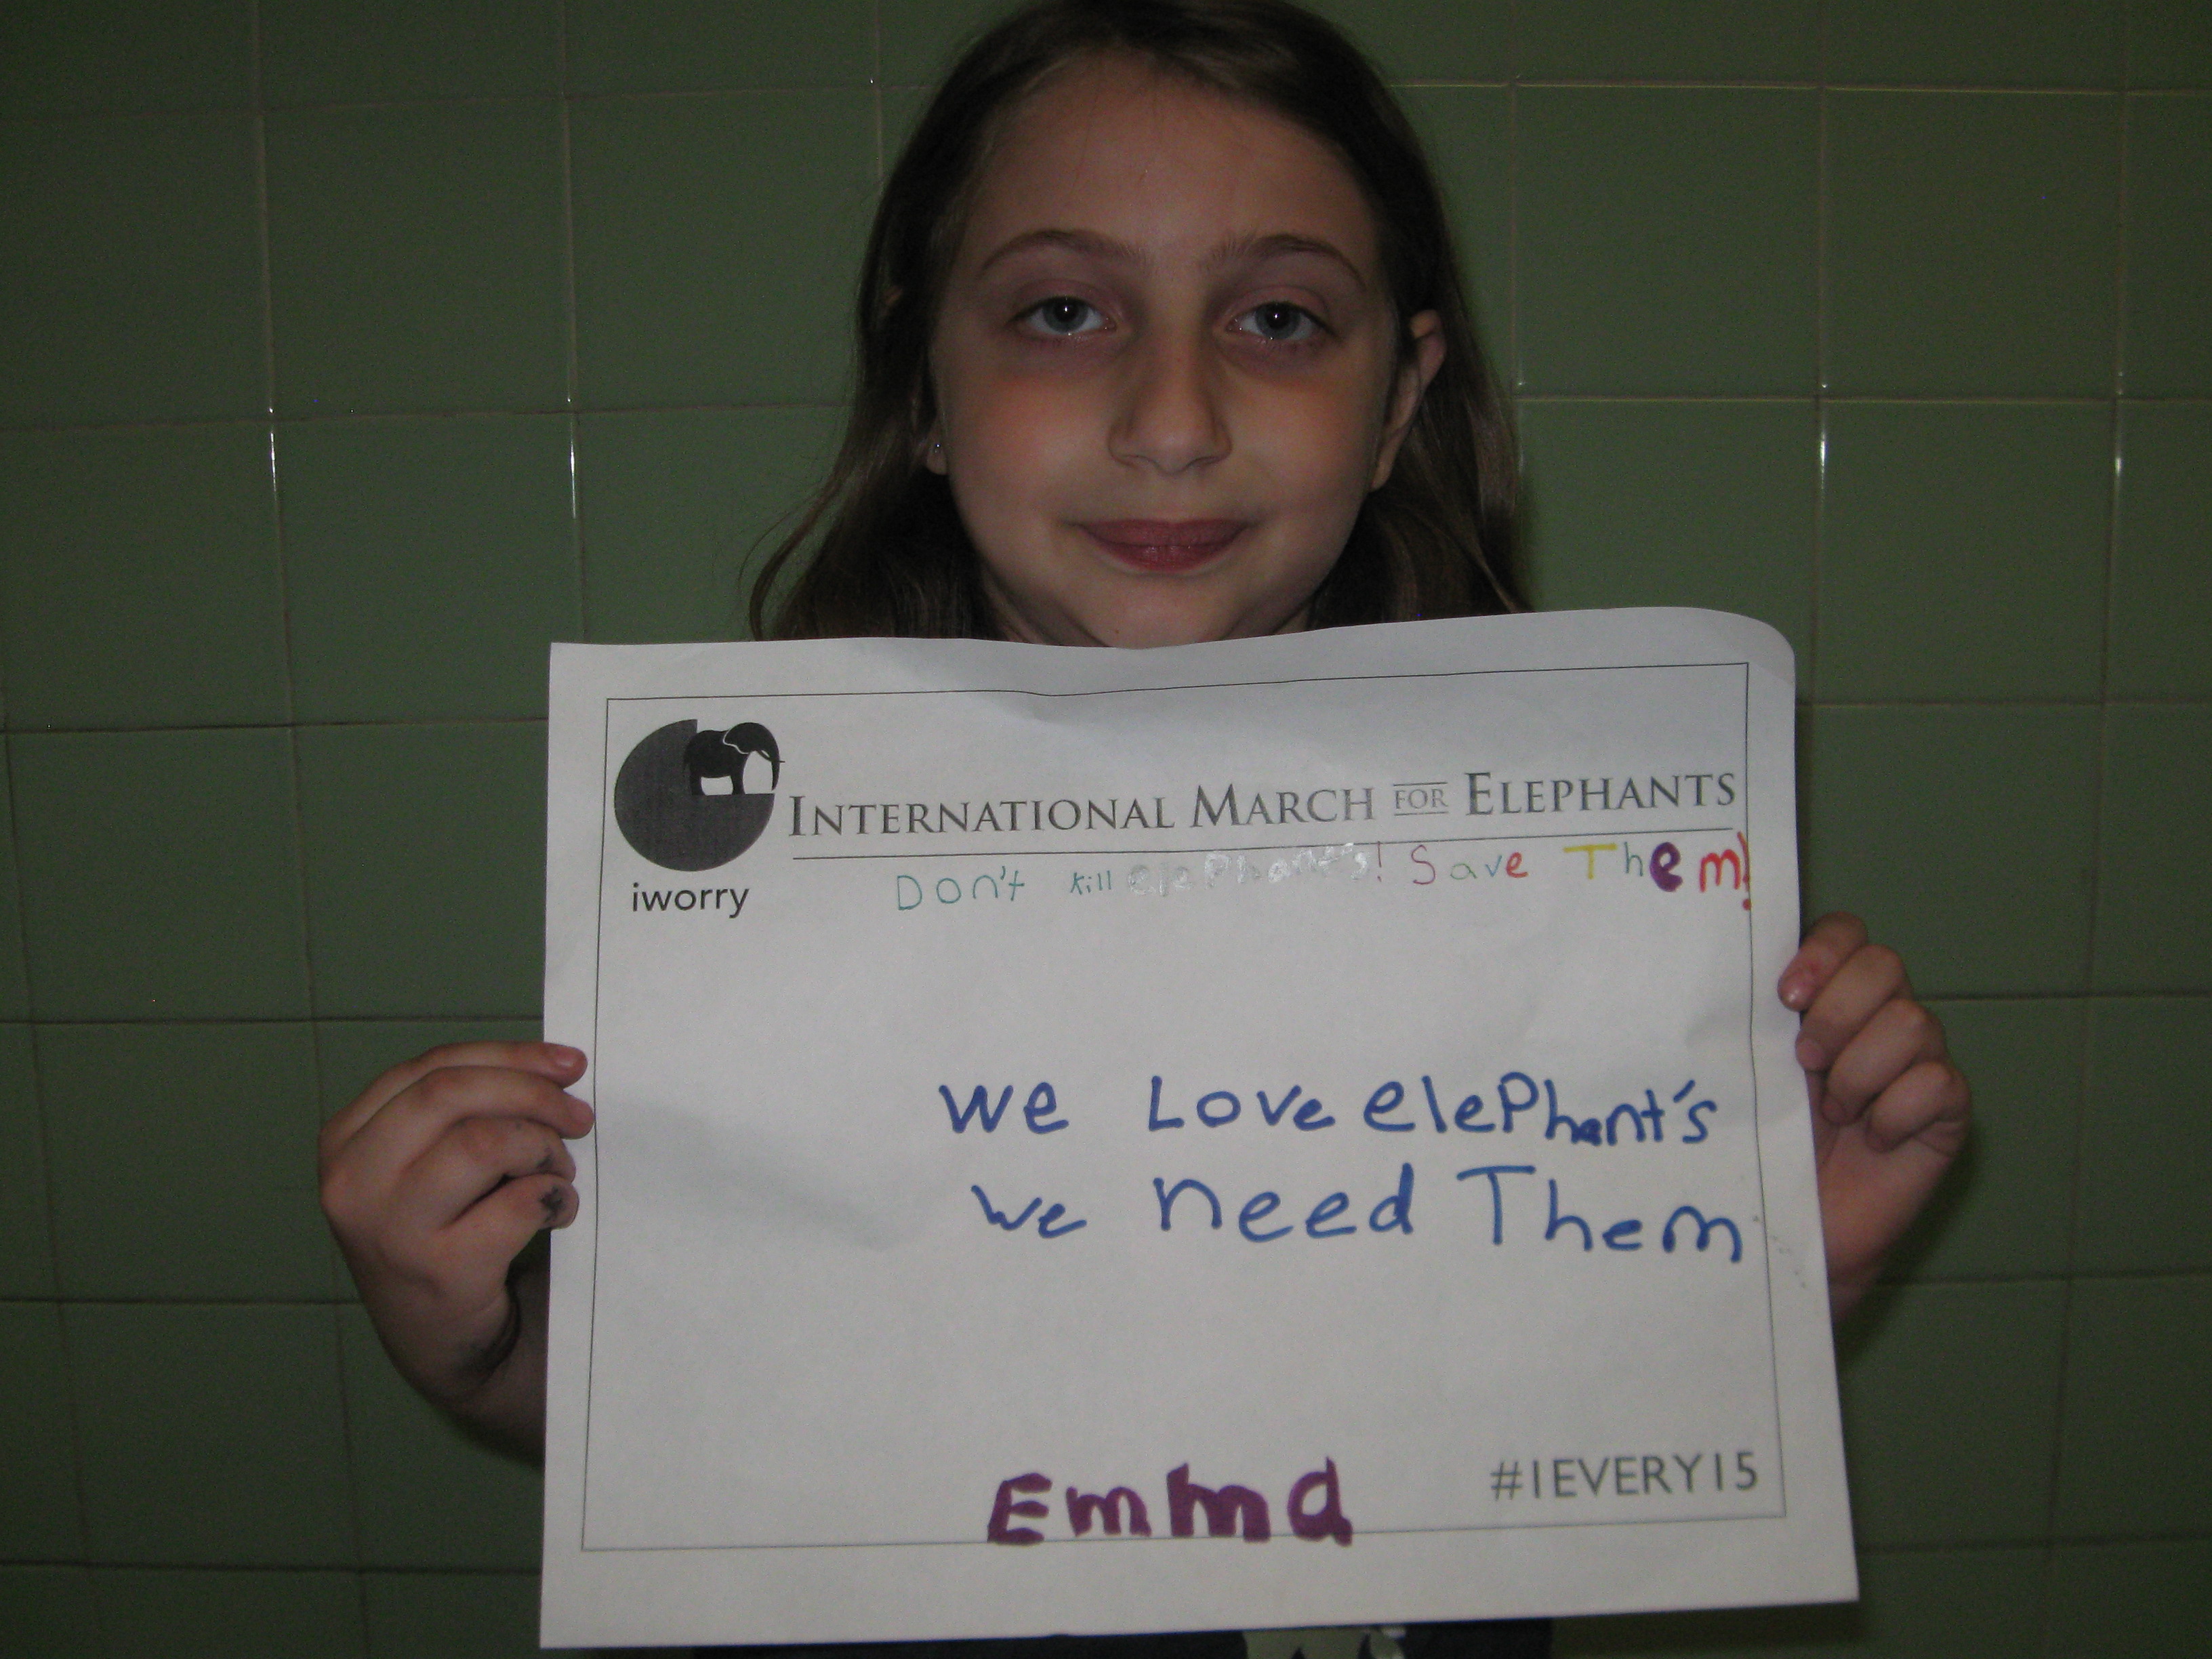 INTERNATIONAL MARCH FOR ELEPHANTS
iworry
Don't kill elephants! Save Them!
We Love elePhant's
We need Them
Emma
#1EVERY15